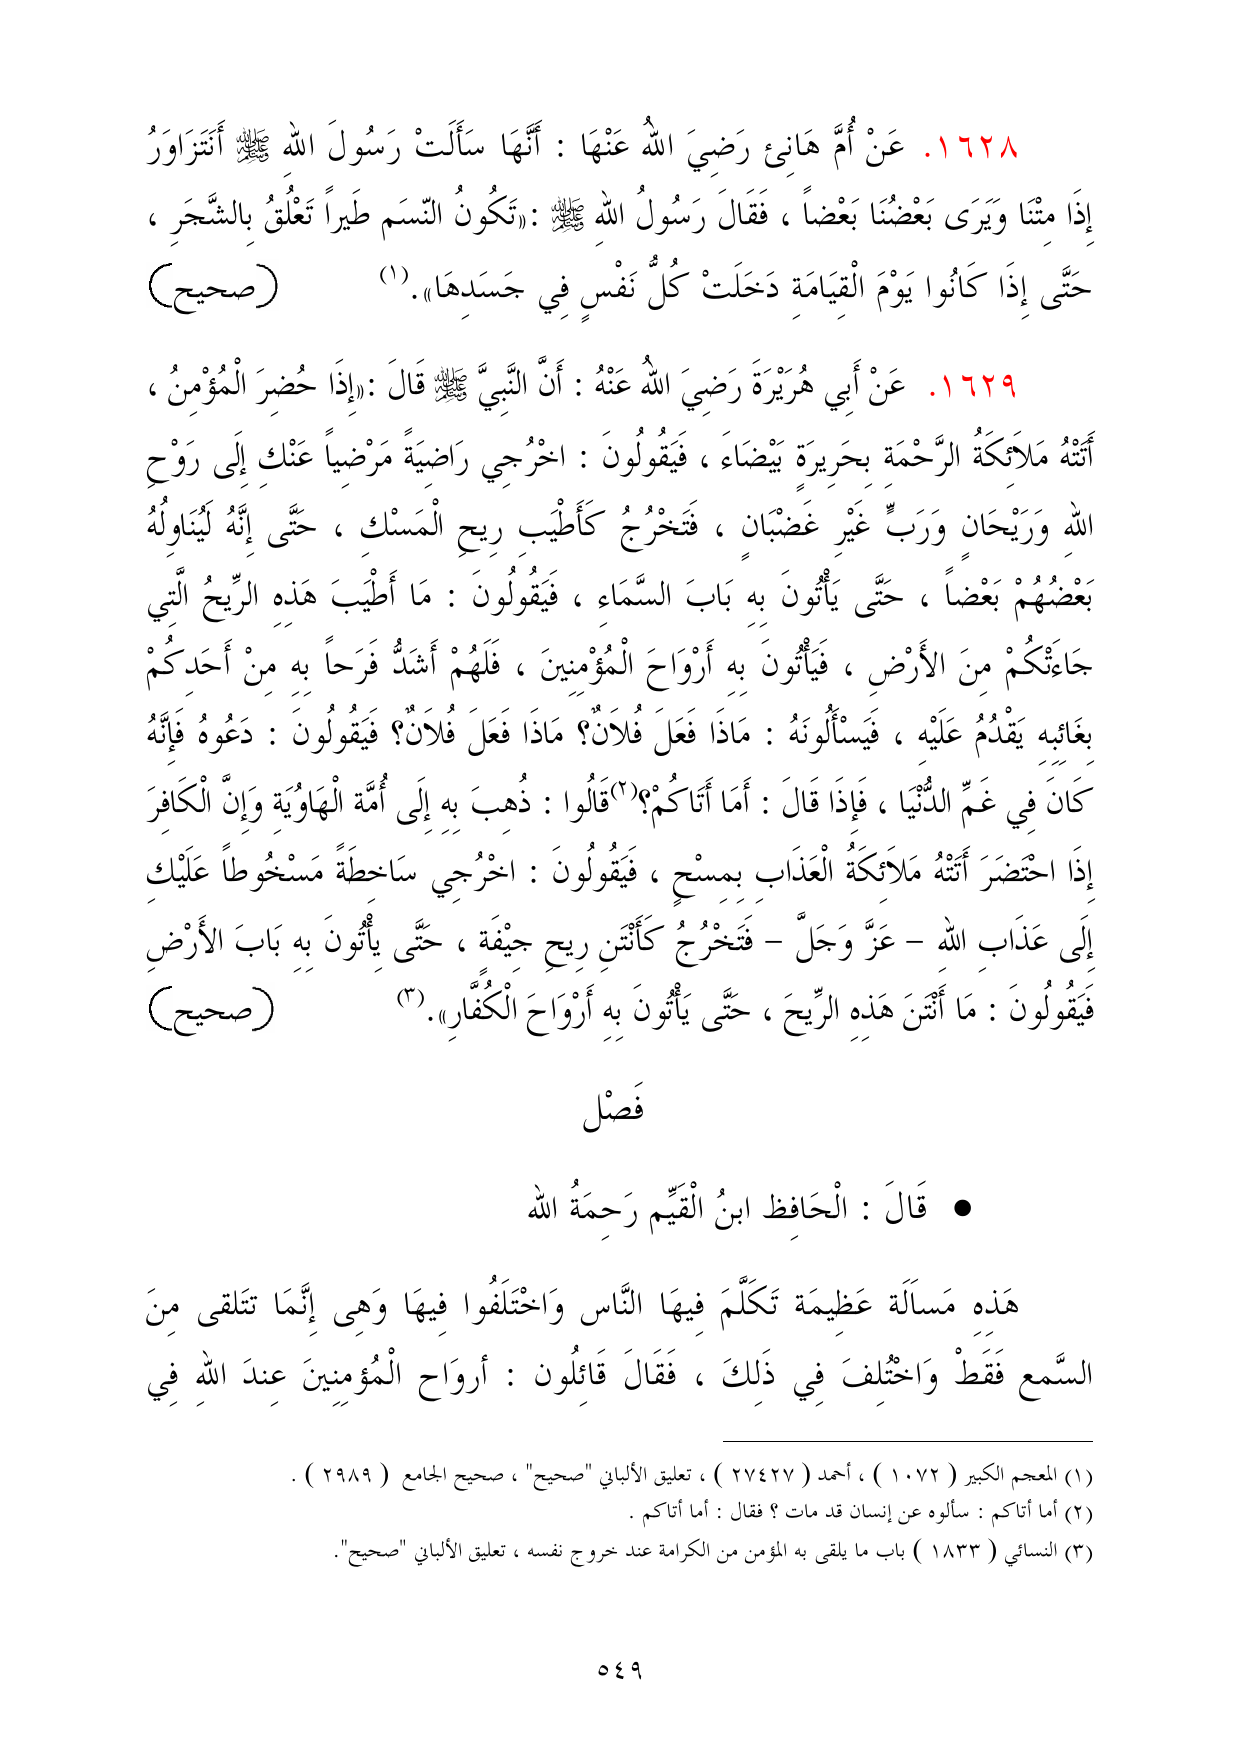 ١٦٢٨. عَنْ أُمَّ هَانِئ رَضِيَ اللهُ عَنْهَا : أَنَّهَا سَأَلَتْ رَسُولَ اللهِ ﷺ أَنَتَزَاوَرُ
إِذَا مِتْنَا وَيَرَى بَعْضُنَا بَعْضاً ، فَقَالَ رَسُولُ اللهِ ﷺ :«تَكُونُ النّسَم طَيراً تَعْلُقُ بِالشَّجَرِ ،
حَتَّى إِذَا كَانُوا يَوْمَ الْقِيَامَةِ دَخَلَتْ كُلُّ نَفْسٍ فِي جَسَدِهَا».(١) (صحيح)
١٦٢٩. عَنْ أَبِي هُرَيْرَةَ رَضِيَ اللهُ عَنْهُ : أَنَّ النَّبِيَّ ﷺ قَالَ :«إِذَا حُضِرَ الْمُؤْمِنُ ،
أَتَتْهُ مَلاَئِكَةُ الرَّحْمَةِ بِحَرِيرَةٍ بَيْضَاءَ ، فَيَقُولُونَ : اخْرُجِي رَاضِيَةً مَرْضِياً عَنْكِ إِلَى رَوْحِ
اللهِ وَرَيْحَانٍ وَرَبٍّ غَيْرِ غَضْبَانٍ ، فَتَخْرُجُ كَأَطْيَبِ رِيحِ الْمَسْكِ ، حَتَّى إِنَّهُ لَيُنَاوِلُهُ
بَعْضُهُمْ بَعْضاً ، حَتَّى يَأْتُونَ بِهِ بَابَ السَّمَاءِ ، فَيَقُولُونَ : مَا أَطْيَبَ هَذِهِ الرِّيحُ الَّتِي
جَاءَتْكُمْ مِنَ الأَرْضِ ، فَيَأْتُونَ بِهِ أَرْوَاحَ الْمُؤْمِنِينَ ، فَلَهُمْ أَشَدُّ فَرَحاً بِهِ مِنْ أَحَدِكُمْ
بِغَائِبِهِ يَقْدُمُ عَلَيْهِ ، فَيَسْأَلُونَهُ : مَاذَا فَعَلَ فُلاَنٌ؟ مَاذَا فَعَلَ فُلاَنٌ؟ فَيَقُولُونَ : دَعُوهُ فَإِنَّهُ
كَانَ فِي غَمِّ الدُّنْيَا ، فَإِذَا قَالَ : أَمَا أَتَاكُمْ؟(٢)قَالُوا : ذُهِبَ بِهِ إِلَى أُمَّةِ الْهَاوُيَةِ وَإِنَّ الْكَافِرَ
إِذَا احْتَضَرَ أَتَتْهُ مَلاَئِكَةُ الْعَذَابِ بِمِسْحٍ ، فَيَقُولُونَ : اخْرُجِي سَاخِطَةً مَسْخُوطاً عَلَيْكِ
إِلَى عَذَابِ اللهِ – عَزَّ وَجَلَّ – فَتَخْرُجُ كَأَنْتَنِ رِيحِ جِيْفَةٍ ، حَتَّى يِأْتُونَ بِهِ بَابَ الأَرْضِ
فَيَقُولُونَ : مَا أَنْتَنَ هَذِهِ الرِّيحَ ، حَتَّى يَأْتُونَ بِهِ أَرْوَاحَ الْكُفَّارِ».(٣) (صحيح)
فَصْل
● قَالَ : الْحَافِظ ابنُ الْقَيِّم رَحِمَةُ الله
هَذِهِ مَسأَلَة عَظِيمَة تَكَلَّمَ فِيهَا النَّاس وَاخْتَلَفُوا فِيهَا وَهِى إِنَّمَا تتَلقى مِنَ
السَّمع فَقَطْ وَاخْتُلِفَ فِي ذَلِكَ ، فَقَالَ قَائِلُون : أروَاح الْمُؤمِنِينَ عِندَ اللهِ فِي
(١) المعجم الكبير ( ١٠٧٢ ) ، أحمد ( ٢٧٤٢٧ ) ، تعليق الألباني "صحيح" ، صحيح الجامع ( ٢٩٨٩ ) .
(٢) أما أتاكم : سألوه عن إنسان قد مات ؟ فقال : أما أتاكم .
(٣) النسائي ( ١٨٣٣ ) باب ما يلقى به المؤمن من الكرامة عند خروج نفسه ، تعليق الألباني "صحيح".
٥٤٩